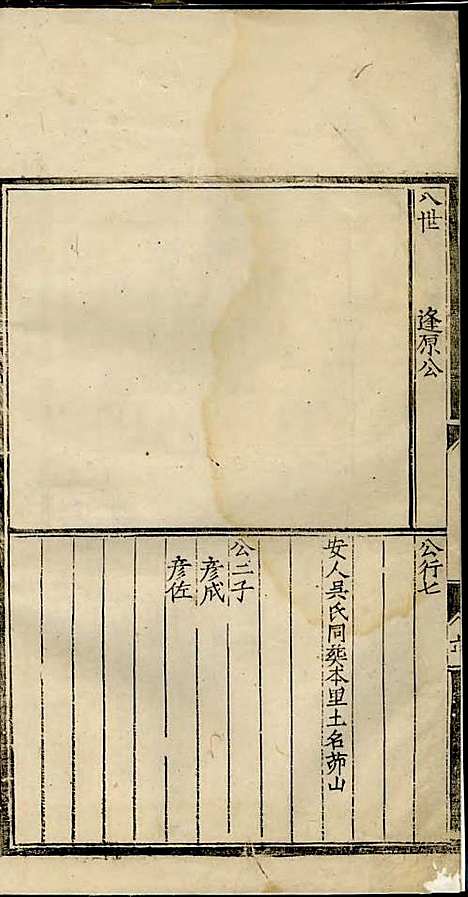 八世 逢原公
公行七
安人吳氏同葬本里土名茆山
公二子
彥成
彥佐